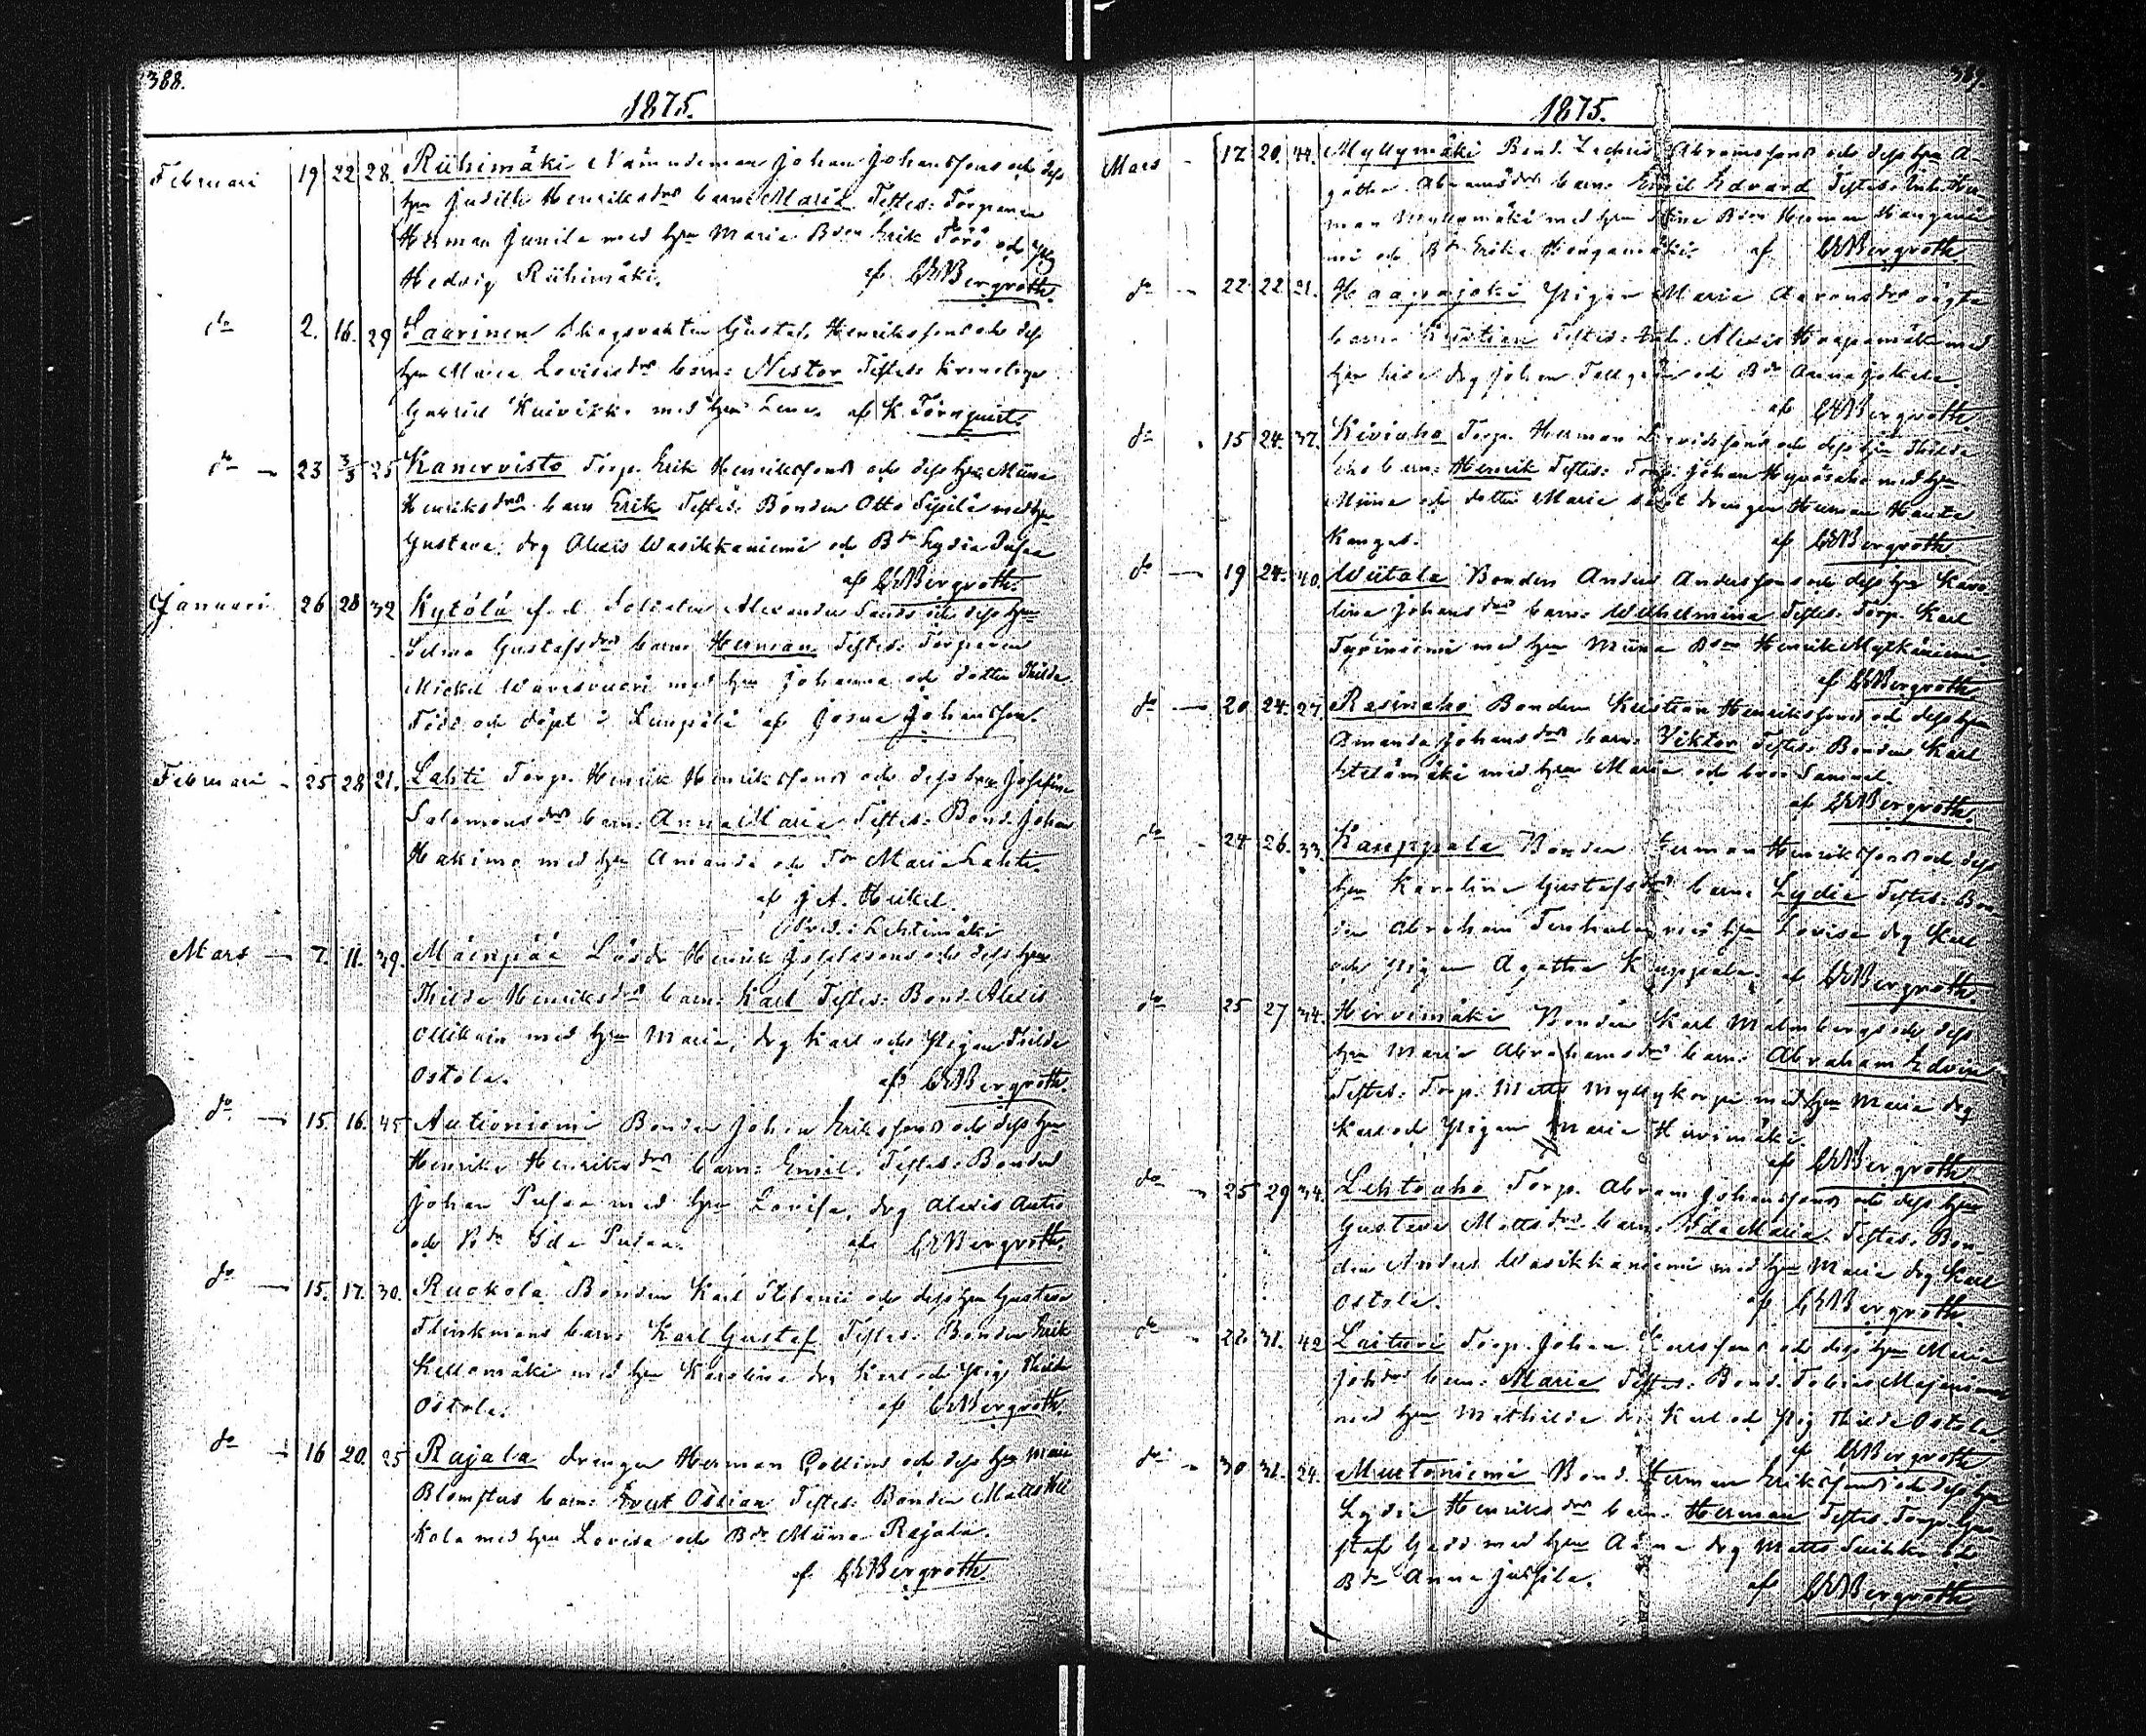 388.
1875.
Februari 19 22 28. Riihimäki Nämndeman Johan Johanssons och dess
hu Judith Henriksdrs barn: Maria Testes: Torparen
Herman Junila med hu Maria Bson Erik Törö och Pig
Hedvig Riihimäki. af CEBergroth.
do 2. 16. 29 Saarinen Skogsvakten Gustaf Henrikssons och dess
hu Maria Lovisa drs barn: Nestor Testes:
Gabriel med hu Lena. af K. Törnquist.
do 23 3/3 25 Kanervisto Torp. Erik Henrikssons och dess hu Miina
Henriksdrs barn Erik Testes: Bonden Otto Sipilä med hu
Gustava, drg Alexis Wasikkaniemi och Bdr Lydia Pusaa
af CEBergroth.
Januari 26 28 32 Kytölä f. d. Soldaten Alexander Sunds och dess hu
Selma Gustafsdrs barn Herman Testes: Torparen
Mickel med hu Johanna och dotter Thilda.
Född och döpt i Lempälä af Josua Johansson.
Februari 25 28 21. Lahti Torp. Henrik Henrikssons och dess hu Josefina
Salomonsdrs barn: Anna Maria Testes: Bond. Johan
Hakimo med hu Amanda och Maria Lahti.
af J. A. Heikel.
Pred. i Lehtimäki
Mars 7. 11. 39. Mäenpää Lösdr Henrik Josefssons och dess hu
Thilda Henriksdrs barn: Karl Testes: Bond. Alexis
Ollikain med hu Maria, drg Karl och Pigan Thilda
Ostola. af CEBergroth.
do 15. 16. 45 Autioniemi Bonden Johan Erikssons och dess hu
Henrika Henriksdrs barn: Emil. Testes: Bonden
Johan Pusaa med hu Lovisa, drg Alexis Autio
och Bdr Ida Pusaa. af CEBergroth.
do 15. 17. 30. Ruokola Bonden Karl Stefanii och dess hu Gustava
Flinkmans barn: Karl Gustaf Testes: Bonden Erik
Kellomäki med hu Karolina drg Karl och Pig Thilda
Ostola. af CEBergroth.
do 16 20. 25 Rajala drengen Herman Collins och dess hu Maria
Blomsters barn: Evert Ossian Testes: Bonden Matts
kola med hu Lovisa och Bdr Miina Rajala.
af CEBergroth.
389.
1875.
Mars 17 20. 44. Myllymäki Bond. Zachris Abramssons och dess hu A-
gatha Abramsdrs barn: Emil Edvard Testes: Enkl. Her
man Myllymäki med hu Stina Bson Herman Kangasnie
mi och Bdr Erika Kangamäki. af CEBergroth
do 22 22 21. Haapajoki Pigan Maria Aaronsdrs oägta
barn: Kristian Testes: Alexis Haapamäki med
hu Lisa drg Johan Tallgren och Bdr Anna Jokela
af CEBergroth
do 15 24. 37. Kiviaho Torp. Herman Davidssons och dess hu Thilda
barn: Henrik Testes: Torp. Johan med hu
Miina och dotter Maria samt drengen Herman Hauta
kangas. af CEBergroth
do 19 24. 40. Wiitala Bonden Anders Anderssons och dess hu Karo
lina Johansdrs barn: Wilhelmina Testes: Torp. Karl
med hu Miina Bson Henrik Mylläniemi
af CEBergroth
do 20 24. 27 Rasinaho Bonden Kristian Henrikssons och dess hu
Amanda Johansdrs barn: Viktor Testes: Bonden Karl
Etelämäki med hu Maria och bror Samuel.
af CEBergroth.
do 24 26. 33. Kauppala Bonden Herman Henrikssons och dess
hu Karolina Gustafsdrs barn: Lydia Testes: Bon-
den Abraham med hu Lovisa drg Karl
och Pigan Agatha Kauppala. af CEBergroth.
do 25 27 34. Hirvimäki Bonden Karl Malmbergs och dess
hu Maria Abrahamsdrs barn: Abraham Edvin
Testes: Torp. Matts Myllykorpi med hu Maria drg
Karl och Pigan Maria Hirvimäki.
af CEBergroth
do 25 29 34. Lehtoaho Torp. Abram Johanssons och dess hu
Gustava Mattsdrs barn: Ida Maria. Testes: Bon-
den Anders Wasikkaniemi med hu Maria drg Karl
Ostola. af CEBergroth.
do 22. 31. 42 Laituri Torp. Johan Karlssons och dess hu Maria
Johdrs barn: Maria Testes: Bond. Tobias Majaniemi
med hu Mathilda drg Karl och Pig Thilda Ostola
af CEBergroth
do 30 31. 24. Muotoniemi Bond. Herman Erikssons och dess hu
Lydia Henriksdrs barn: Herman Testes: Torp. Gu
staf Gädd med hu Anna drg Matts och
Bdr Anna Jussila. af CEBergroth